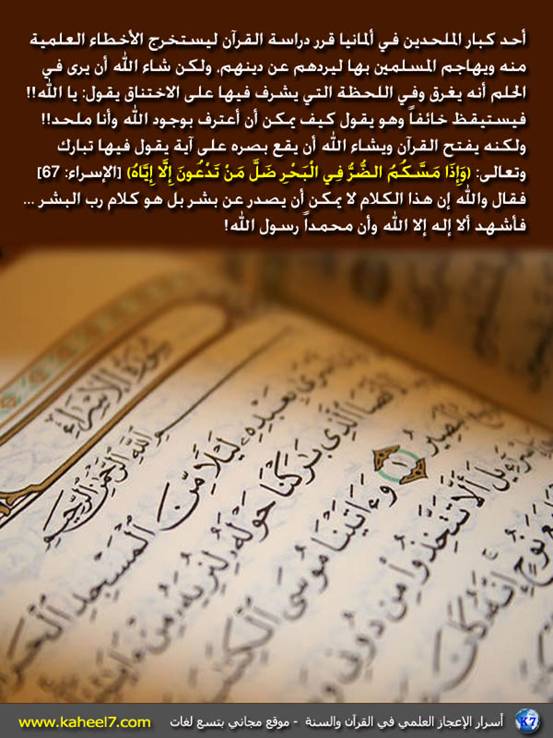 أحد كبار الملحدين في ألمانيا قرر دراسة القرآن ليستخرج الأخطاء العلمية
منه ويهاجم المسلمين بها ليردهم عن دينهم، ولكن شاء الله أن يرى في
الحلم أنه يغرق وفي اللحظة التي يشرف فيها على الاختناق يقول: يا الله!!
فيستيقظ خائفاً وهو يقول كيف يمكن أن أعترف بوجود الله وأنا ملحد!!
ولكنه يفتح القرآن ويشاء الله أن يقع بصره على آية يقول فيها تبارك
وتعالى: (وَإِذَا مَسَّكُمُ الضُّرُّ فِي الْبَحْرِ ضَلَّ مَنْ تَدْعُونَ إِلَّا إِيَّاهُ) [الإسراء: 67]
فقال والله إن هذا الكلام لا يمكن أن يصدر عن بشر بل هو كلام رب البشر ...
فأشهد ألا إله إلا الله وأن محمداً رسول الله!
سُورَةُ الإِسْرَاءِ
اللَّهِ الرَّحْمَٰنِ الرَّحِيمِ
بِعَبْدِهِ لَيْلًا مِّنَ الْمَسْجِدِ الْحَرَا
الَّذِي بَارَكْنَا حَوْلَهُ لِنُرِيَهُ مِنْ ءَايَٰ
الْبَصِيرُ ١ وَءَاتَيْنَا مُوسَى الْكِتَٰبَ
أَلَّا تَتَّخِذُوا مِن دُونِي
نُوحٍ إِنَّهُ كَانَ
K7 أسرار الإعجاز العلمي في القرآن والسنة - موقع مجاني بتسع لغات www.kaheel7.com